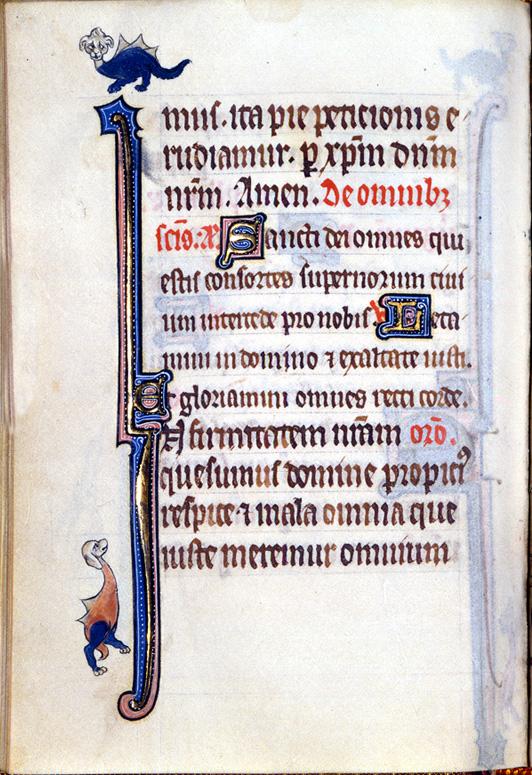 mus. ita pie peticionis e-
rudiamur. p xpm dnm
nrm. Amen. De omnibz
scis. A. Sancti dei omnes qui
estis consortes supernorum ciui
um intercede pro nobis V Leta-
mini in domino ⁊ exaltate iusti.
Et gloriamini omnes recti corde.
Infirmitatem nram oro.
quesumus domine propici9
respice ⁊ mala omnia que
iuste meremur omnium